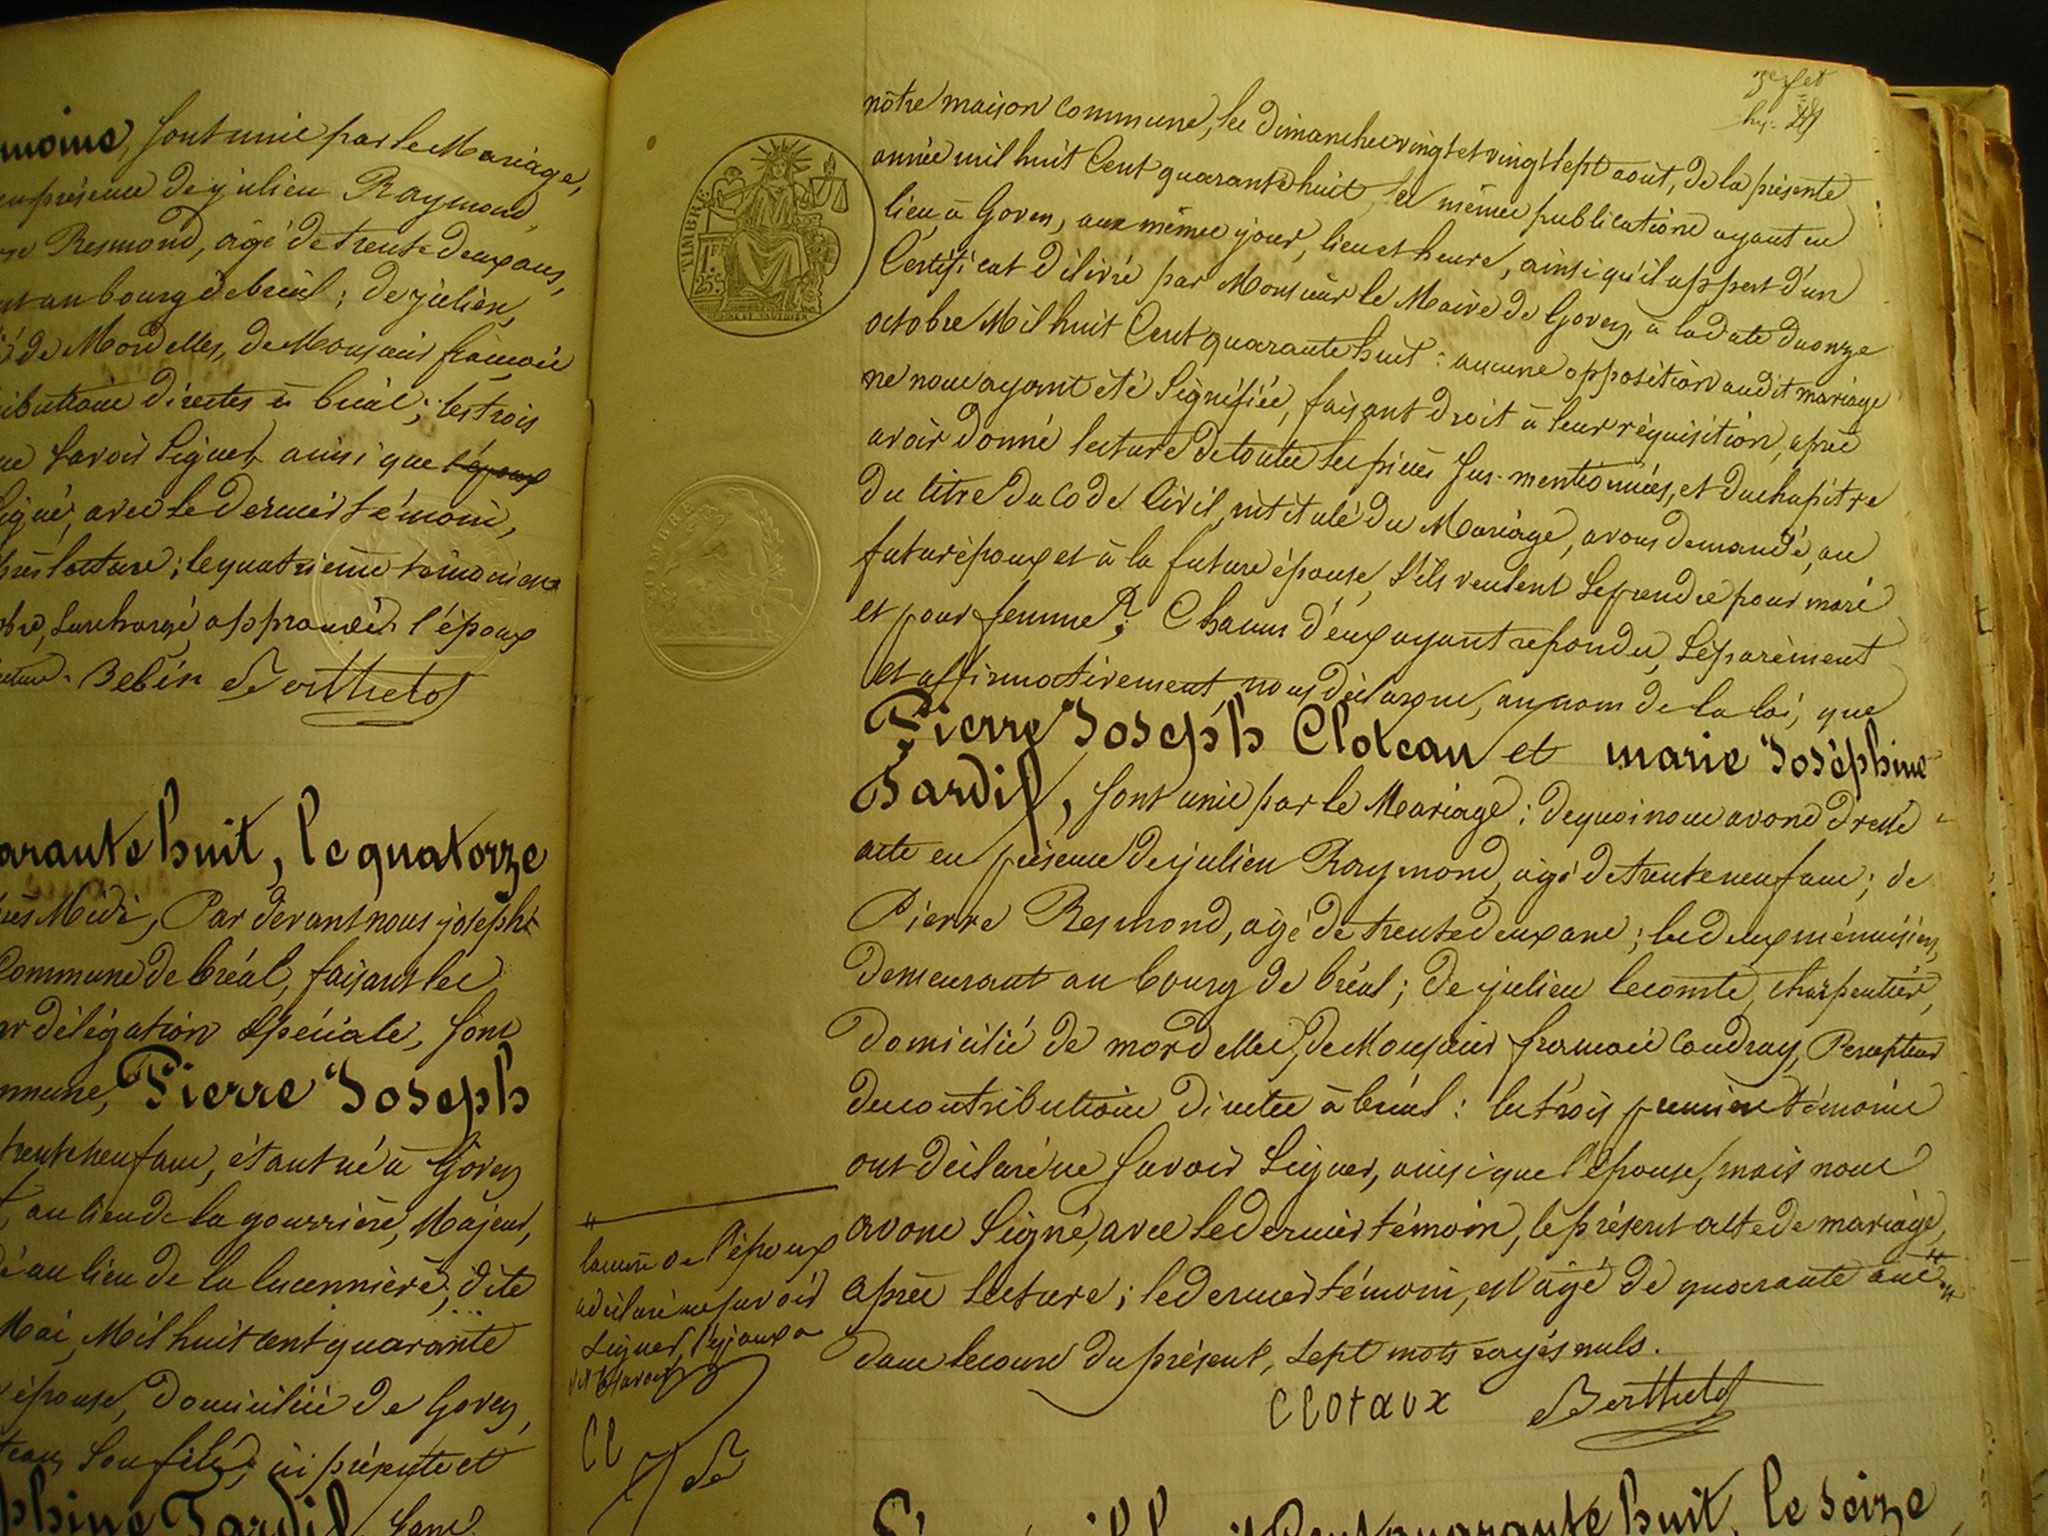 moins, sont unis par le Mariage,
en présence de julien Raymond,
Resmond, âgé de trente deux ans,
au bourg de bréal; de julien
de Mordelles, de Monsieur françois
directes à bréal; les trois
savoir Signer, ainsi que l'époux
signé, avec le dernier témoin,
lecture; le quatrième témoin
surchargé approuvé. l'époux
Bebin Berthelot
arante huit, le quatorze
Midi, Par devant nous joseph
Commune de bréal, faisant les
délégation Spéciale, sont
mmune, Pierre Joseph
trente neuf ans, étant né à Goven
au lieu de la gourrière, Majeur,
au lieu de la lucennière, dite
Mai, Mil huit cent quarante
épouse, domiciliée de Goven,
teau, Son fils, ici présente et
phine Tardif,
TIMBRE
1F
25c
TIMBRE
nôtre maison commune, les dimanches vingt et vingt sept août, de la présente
année mil huit Cent quarante huit, les mêmes publications ayant eu
lieu à Goven, aux mêmes jour, lieu et heure, ainsi qu'il appert d'un
Certificat délivré par Monsieur le Maire de Goven, à la date du onze
octobre Mil huit Cent quarante huit: aucune opposition audit mariage
ne nous ayant été Signifiée, faisant droit à leur réquisition, après
avoir donné lecture de toutes les pièces Sus-mentionnées, et du chapitre
du titre du Code Civil, intitulé du Mariage, avons demandé, au
futur époux et à la future épouse, S'ils veulent Se prendre pour mari
et pour femme? Chacun d'eux ayant répondu, Séparément
et affirmativement, nous déclarons, au nom de la loi, que
Pierre Joseph Cloteau et marie Joséphine
Tardif, sont unis par le Mariage: de quoi nous avons dressé
acte en présence de julien Raymond, âgé de trente neuf ans; de
Pierre Resmond, âgé de trente deux ans; les deux menuisiers,
demeurant au bourg de bréal; de julien lecomte, charpentier,
domicilié de mordelles, de Monsieur françois Coudray, Percepteur
des contributions directes à bréal: les trois premiers témoins
ont déclaré ne savoir Signer, ainsi que l'épouse, mais nous
avons Signé, avec le dernier témoin, le présent acte de mariage,
après lecture; le dernier témoin, est âgé de quarante ans
dans le cours du présent, Sept mots rayés nuls.
Clotaux Berthelot
la mère de l'époux
a déclaré ne savoir
Signer, l'époux a
dit le savoir
Cl
huit, le Seize